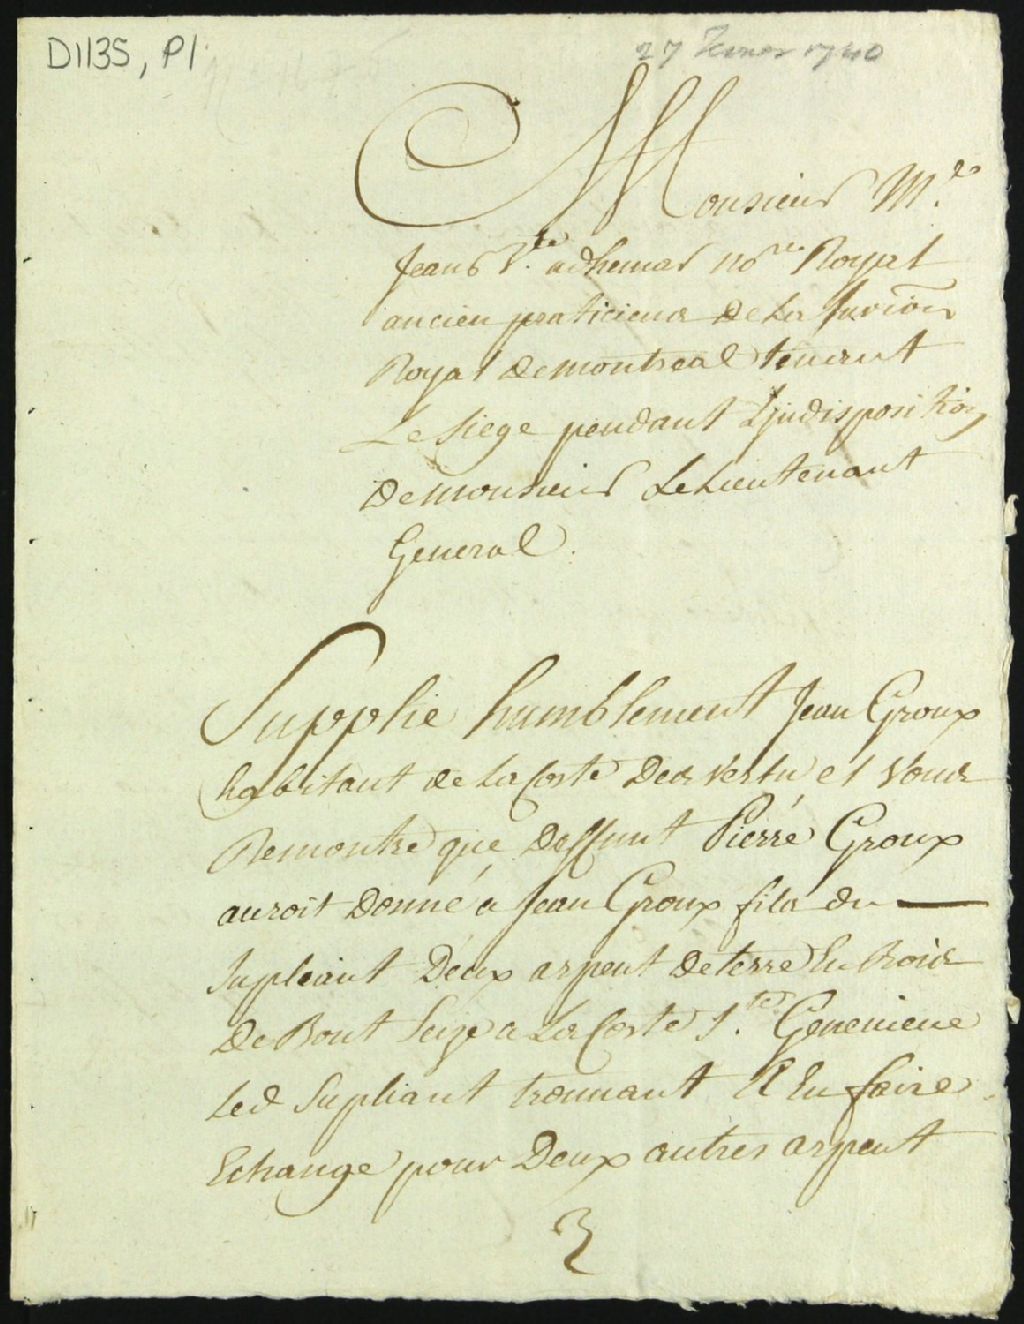 D1135, P1
27 1740
Monsieur M.re
Jean B.te adhemar no.re Royal
ancien praticien de La Jurion
Royal de montreal tenant
Le Siege pendant L'jndisposition
de monsieur Le Lieutenant
General
Supplie humblement Jean Groux
habitant de La Coste Des Vertu et Vous
Remontre que Deffunt Pierre Groux
auroit Donné a Jean Groux fils du
Supliant Deux arpent de terre En Bois
De Bout Size a La Coste S.te Genevieve
Led Supliant trouvant A En faire
Echange pour Deux autres arpent